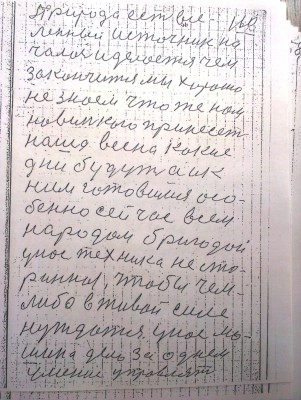 Природа есть все- 160
ленный источник на
чалой и делается чем
закончится мы хорошо
не знаем что же нам
новинкого принесет
наша весна какие
дни будут а их
ним готовился осо-
бенно сейчас всем
народом бригадой
у нас техника не ста-
ринны, чтобы чем-
либо в живой силе
нуждатся, у нас ма-
шина день за одним
умение управлят